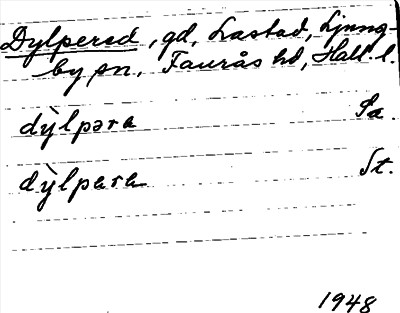 Dylpered, gd, Lastad, Ljung-
by sn., Faurås hd, Hall. l.
dỳlpəra Sa.
dỳlpara St.
1948